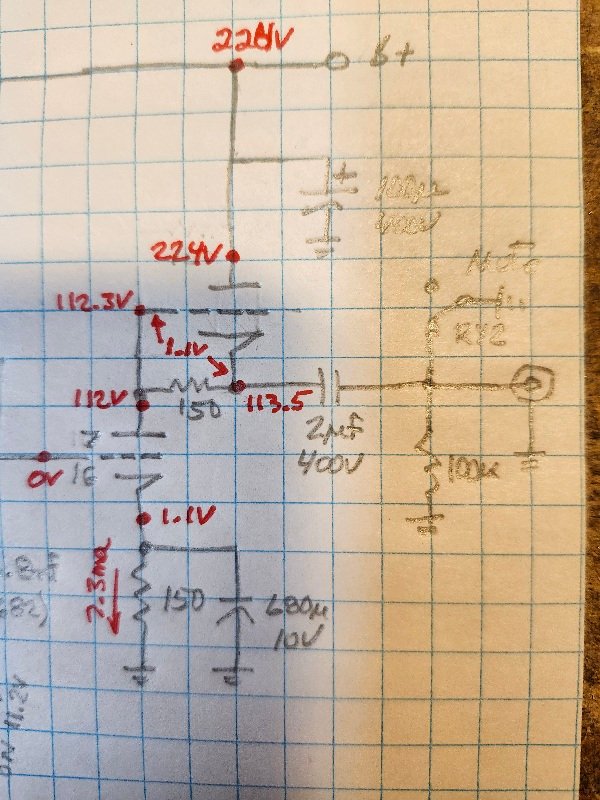 224V
B+
+
100µ
400V
224V
112.3V
1.1V
RY2
112V
150
113.5
2µF
400V
100K
0V
1.1V
7.3ma
150
680µ
10V
.8µF
682)